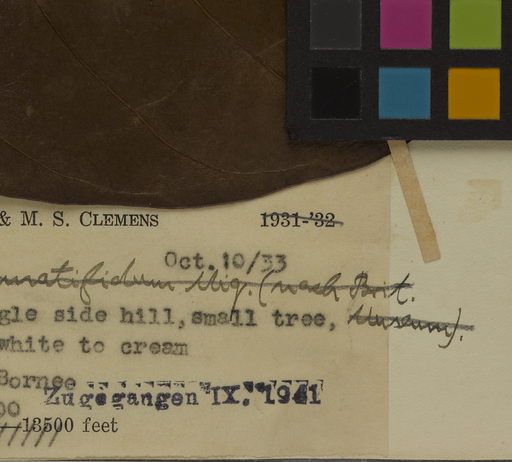 & M. S. CLEMENS 1931-'32
Oct.10/33
Miq. (nach Brit.
gle side hill, small tree, Museum).
white to cream
Borneo
Zugegangen IX. 1941
00
13500 feet